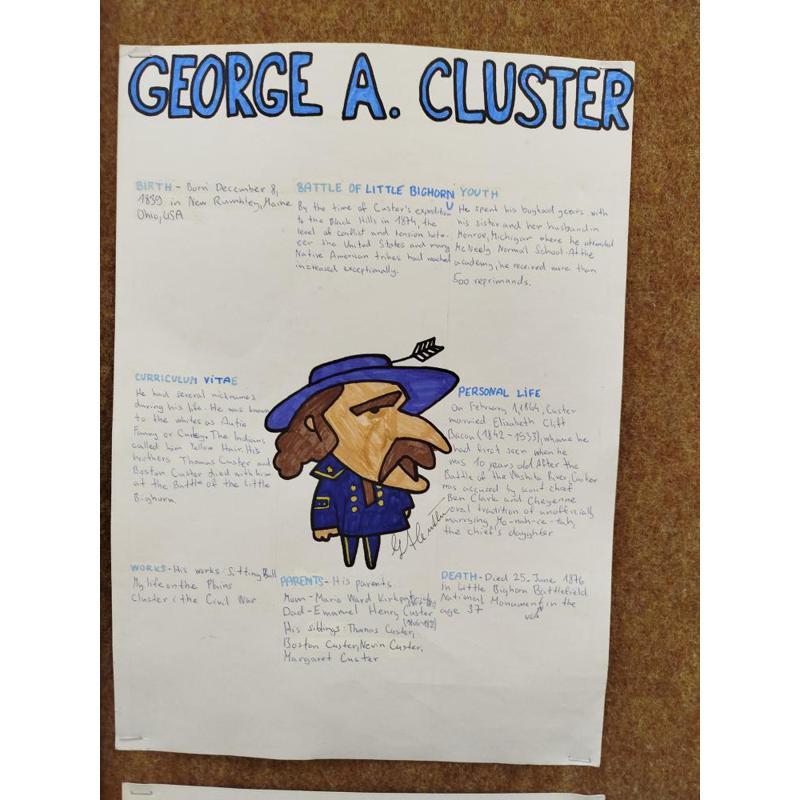 GEORGE A. CLUSTER
BIRTH - Born December 8,
1839 in New Rumbley, Maine
Ohio, USA
BATTLE OF LITTLE BIGHORN
By the time of Custer's expedition
to the Black Hills in 1874, the
level of conflict and tension betw-
een the United States and many
Native American tribes had reached
increased exceptionally.
YOUTH
He spent his boyhood years with
his sister and her husband in
Monroe, Michigan where he attended
McNeely Normal School. At the
academy, he received more than
500 reprimands.
CURRICULUM VITAE
He had several nicknames
during his life. He was known
to the whites as Autie
Fanny or Curley. The Indians
called him Yellow Hair. His
brothers Thomas Custer and
Boston Custer died with him
at the Battle of the Little
Bighorn.
PERSONAL LIFE
On February 1, 1864, Custer
married Elizabeth Clift
Bacon (1842-1933), whome he
had first seen when he
was 10 years old. After the
Battle of the Washita River, Custer
was accused by scout chief
Ben Clark and Cheyenne
oral tradition of unofficially
marrying Mo-nah-ce-tah,
the chief's daughter
WORKS - His works: Sitting Bull
My life on the Plains
Cluster i the Civil War
PARENTS - His parents
Mom - Maria Ward Kirkpatrick
Dad - Emanuel Henry Custer
His siblings: Thomas Custer,
Boston Custer, Nevin Custer,
Margaret Custer
DEATH - Died 25. June 1876
In Little Bighorn Battlefield
National Monument in the
age 37
USA